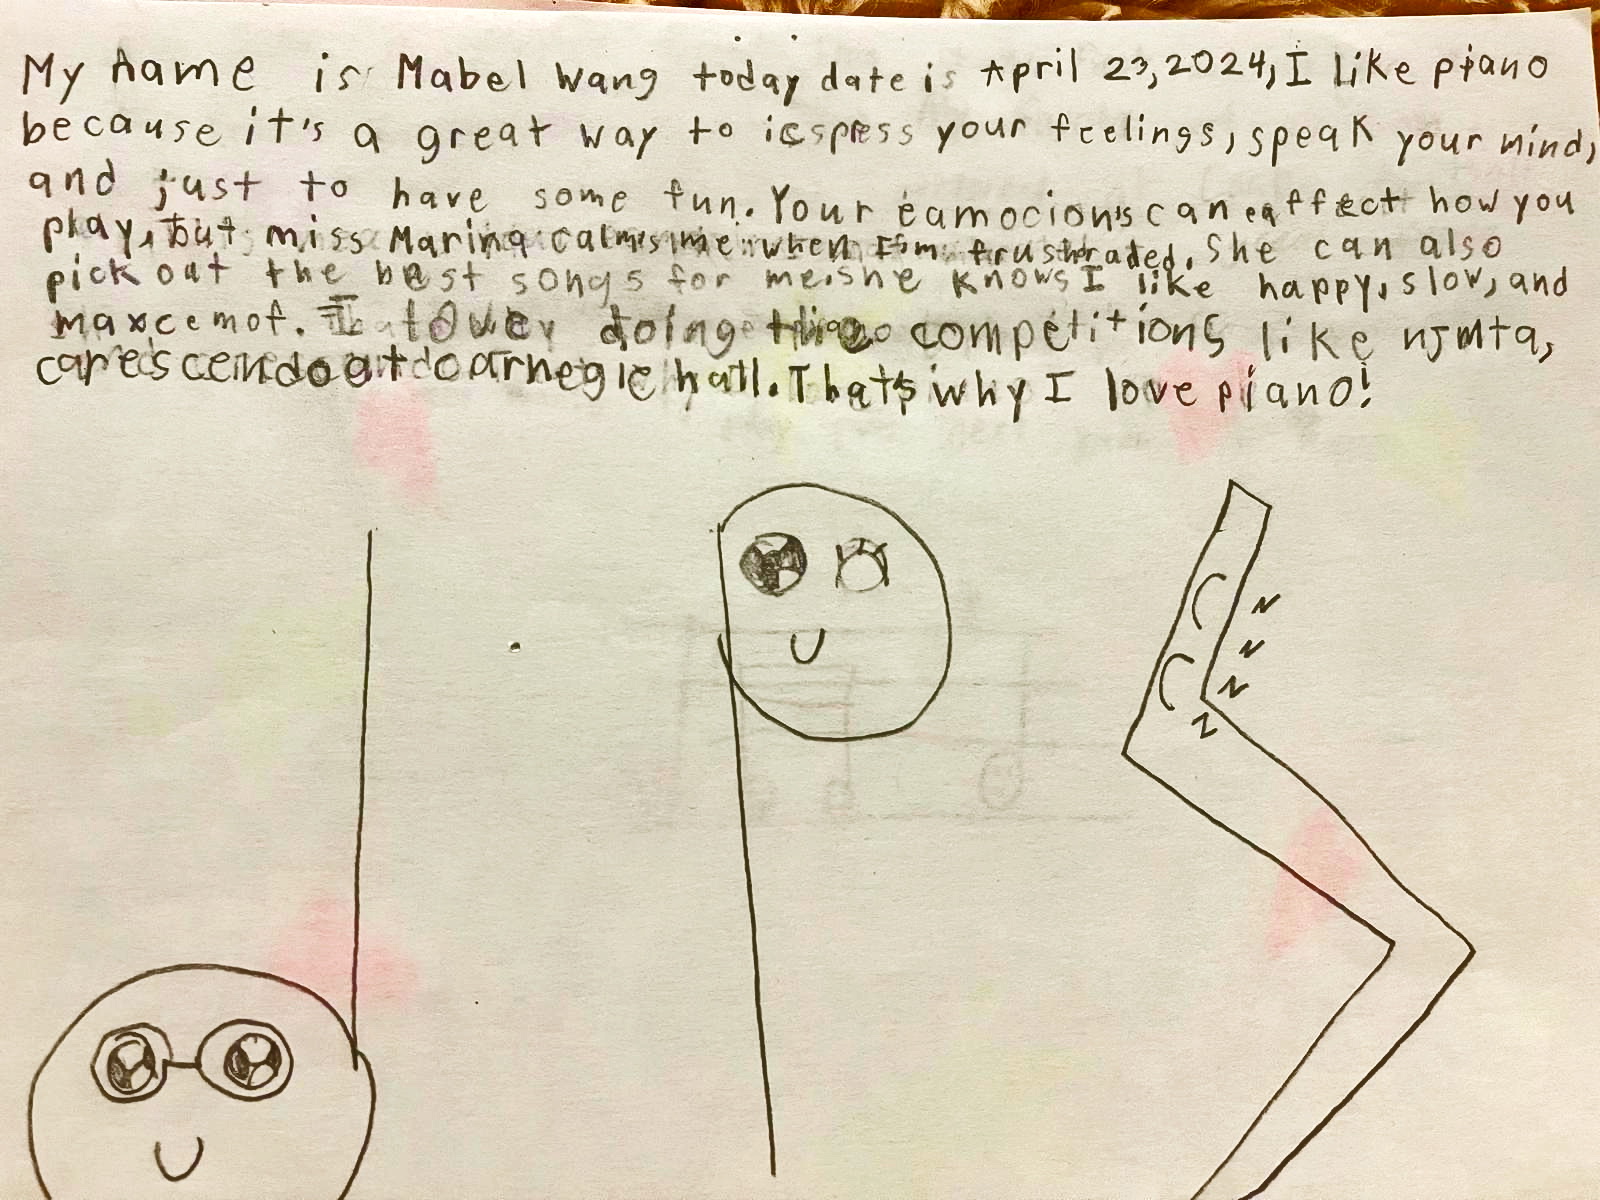 My name is Mabel Wang today date is April 23, 2024, I like piano
because it's a great way to icspress your feelings, speak your mind,
and just to have some fun. Your eamocion's can eaffect how you
play, but miss Marina calms me when I'm frustraded. She can also
pick out the best songs for me. she knows I like happy, slow, and
maxcemof. I love doing competitions like njmta,
carescendo at carnegie hall. That's why I love piano!
N
N
N
Z